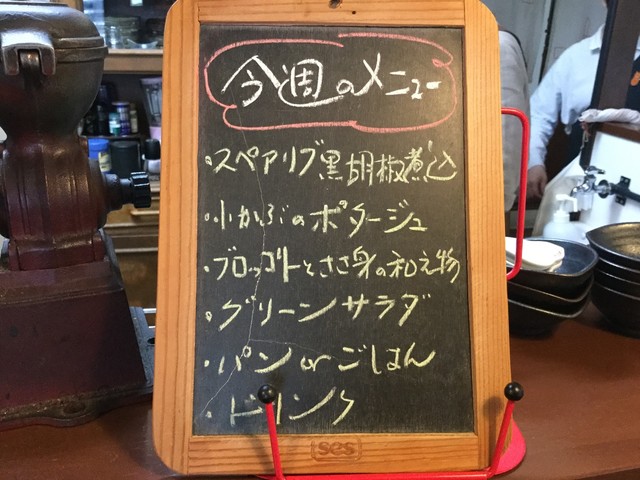 今週のメニュー
・スペアリブ黒胡椒煮込
・小かぶのポタージュ
・ブロッコリーとささ身の和え物
・グリーンサラダ
・パン or ごはん
・ドリンク
SCS